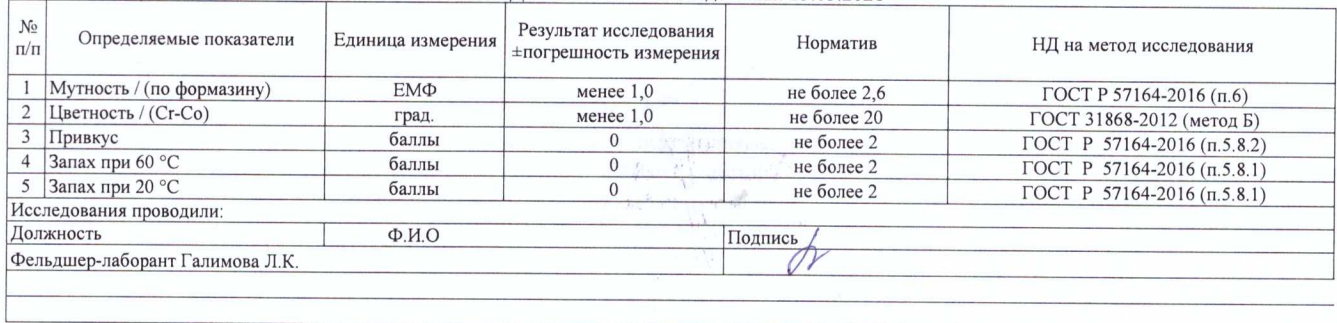 № п/п Определяемые показатели Единица измерения Результат исследования ±погрешность измерения Норматив НД на метод исследования
1 Мутность / (по формазину) ЕМФ менее 1,0 не более 2,6 ГОСТ Р 57164-2016 (п.6)
2 Цветность / (Cr-Co) град. менее 1,0 не более 20 ГОСТ 31868-2012 (метод Б)
3 Привкус баллы 0 не более 2 ГОСТ Р 57164-2016 (п.5.8.2)
4 Запах при 60 °С баллы 0 не более 2 ГОСТ Р 57164-2016 (п.5.8.1)
5 Запах при 20 °С баллы 0 не более 2 ГОСТ Р 57164-2016 (п.5.8.1)
Исследования проводили:
Должность Ф.И.О Подпись
Фельдшер-лаборант Галимова Л.К.